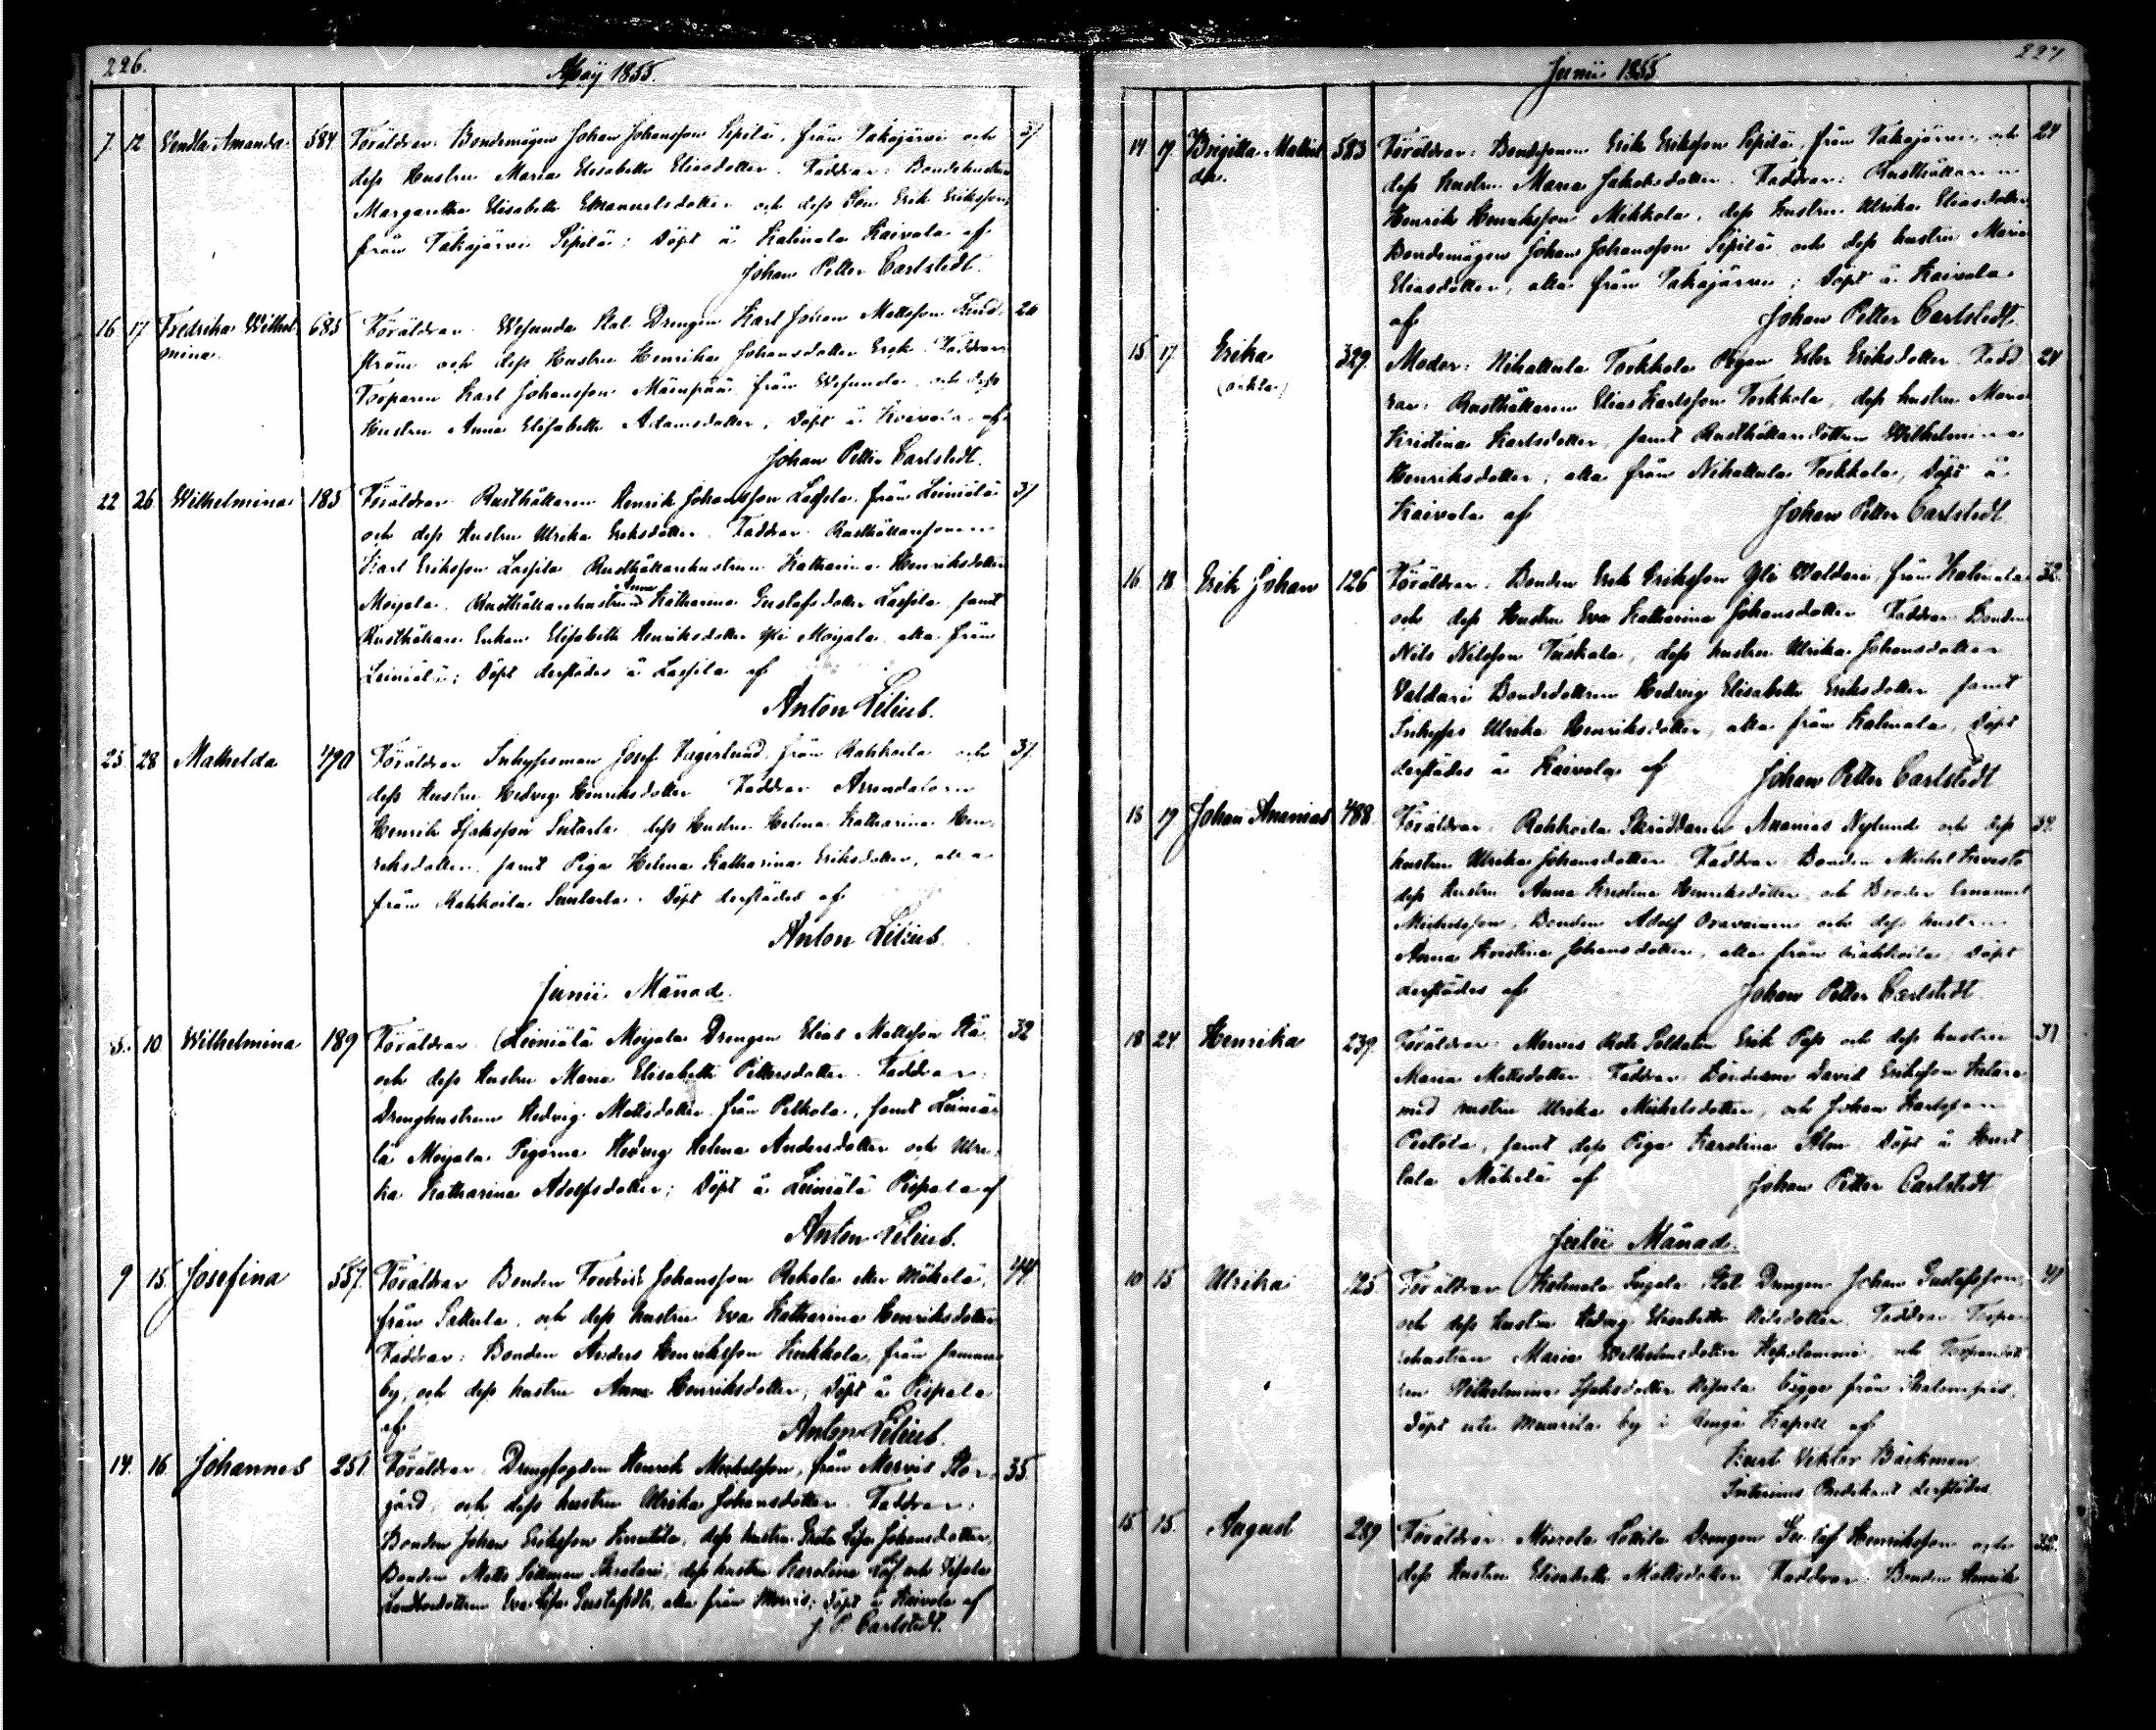 226.
Maÿ 1855.
7. 12 Vendla Amanda. 584 Föräldrar: Bondemågen Johan Johansson Sipilä, från Takajärvi och 31
dess Hustru Maria Elisabeth Eliasdotter. Faddrar: Bondehustrun
Margaretha Elisabeth Emanuelsdotter och dess Son Erik Eriksson,
från Takajärvi Sipilä; Döpt å Katinala Kaivola af
Johan Petter Carlstedt.
16 17 Fredrika Wilhel- 685 Föräldrar: Wesunda Stat Drengen Karl Johan Mattsson
mina. ström och dess Hustru Henrika Johansdotter Faddrar
Torparen Karl Johansson Mäenpää från Wesunda och dess
Hustru Anna Elisabeth Adamsdotter; Döpt å Kaivola af
Johan Petter Carlstedt.
22 26 Wilhelmina 185 Föräldrar Rusthållaren Henrik Johansson Lassila från Leiniälä 31
och dess Hustru Ulrika Eriksdotter. Faddrar Rusthållaresonen
Karl Eriksson Lassila Rusthållarehustrun Katharina Henriksdotter
Anna
Moijala, Rusthållarehustrun Katharina Gustafsdotter Lassila, samt
Rusthållare Enkan Elisabeth Henriksdotter Yli Moijala alla från
Leiniälä; Döpt derstädes å Lassila af
Anton Lilius.
25 28 Mathelda 490 Föräldrar Inhysesman Josef Hägerlund från Rahkoila och 31
dess Hustru Hedvig Henriksdotter Faddrar Arrendatorn
Henrik Isaksson Suutarla dess Hustru Helena Katharina Hen-
riksdotter samt Piga Helena Katharina Eriksdotter, alla
från Rahkoila Suutarla. Döpt derstädes af
Anton Lilius.
Junii Månad.
5. 10. Wilhelmina 189 Föräldrar (Leiniälä Moijala Drengen Elias Mattsson 32
och dess Hustru Maria Elisabeth Pettersdotter. Faddrar:
Drenghustrun Hedvig Mattsdotter från Pelkola, samt Leiniä-
lä Moijala Pigorna Hedvig Helena Andersdotter och Ulri-
ka Katharina Adolfsdotter; Döpt å Leiniälä Pispala af
Anton Lilius.
9 15. Josefina 557. Föräldrar Bonden Fredrik Johansson Rekola eller Mäkelä, 44
från Sattula, och dess hustru Eva Katharina Henriksdotter
Faddrar: Bonden Anders Henriksson Kirkkola, från samma
by, och dess hustru Anna Henriksdotter, Döpt å Pispala
af Anton Lilius.
14. 16. Johannes 251. Föräldrar. Drengfogden Henrik Michelsson, från Mervis Stor- 35.
gård, och dess hustru Ulrika Johansdotter. Faddrar:
Bonden Johan Eriksson dess hustru Greta Lisa Johansdotter,
Bonden Matts dess hustru Karolina och
Eva Lisa Gustafsdtr, alla från Mervis; Döpt å Kaivola af
J. P. Carlstedt.
227
Junii 1855
14 17. Brigitta Mathil- 583 Föräldrar: Bondesonen Erik Eriksson Sipilä, från Takajärvi, och 24
da. dess hustru Maria Jakobsdotter. Faddrar: Rusthållaren
Henrik Henriksson Mikkola, dess hustru Ulrika Eliasdotter
Bondemågen Johan Johansson Sipilä och dess hustru Maria
Eliasdotter, alla från Takajärvi; Döpt å Kaivola
af Johan Petter Carlstedt.
15 17. Erika 329. Moder: Nihattula Torkkola Pigan Ester Eriksdotter. Fadd- 24
(oäkta) rar: Rusthållaren Elias Karlsson Torkkola, dess hustru Maria
Kristina Karlsdotter, samt Rusthållaredottren Wilhelmina
Henriksdotter, alla från Nihattula Torkkola, Döpt å
Kaivola af Johan Petter Carlstedt.
16. 18 Erik Johan 126 Föräldrar: Bonden Erik Eriksson Yli Waldari från Katinala 32.
och dess Hustru Eva Katharina Johansdotter Faddrar Bonden
Nils Nilsson Tuskala, dess hustru Ulrika Johansdotter
Valdari Bondedottren Hedvig Elisabeth Eriksdotter samt
Inhyses Ulrika Henriksdotter, alla från Katinala, Döpt
derstädes å Kaivola af Johan Petter Carlstedt
18 19 Johan Ananias 488. Föräldrar. Rahkoila Skräddaren Ananias Nylund och dess
hustru Ulrika Johansdotter Faddrar Bonden Michel
dess hustru Anna Kristina Henriksdotter och Broder Emanuel
Michelsson, Bonden Adolf Oravainen och dess hustru
Anna Kristina Johansdotter, alla från Rahkoila, Döpt
derstädes af Johan Petter Carlstedt.
18 24. Henrika 239. Föräldrar Mervis Rote Soldaten Erik och dess hustru
Maria Mattsdotter Faddrar Bönderne David Eriksson
med hustru Ulrika Michelsdotter, och Johan Karlsson
samt dess Piga Karolina Döpt å
Mäkelä af Johan Petter Carlstedt
Julii Månad.
10 15 Ulrika 125. Föräldrar Katinala Stat Drengen Johan Gustafsson, 41
och dess hustru Hedvig Elisabeth Nilsdotter. Faddrar Torpa-
rehustrun Maria Wilhelmsdotter och
Wilhelmina Isaksdotter bägge från
Döpt uti by i Renga Kapell af
Knut Viktor Bäckman
Interims Predikant derstädes.
15. 15. August 289 Föräldrar Lottila Drengen Gustaf Henriksson och 32.
dess Hustru Elisabeth Mattsdotter Faddrar: Bonden Henrik